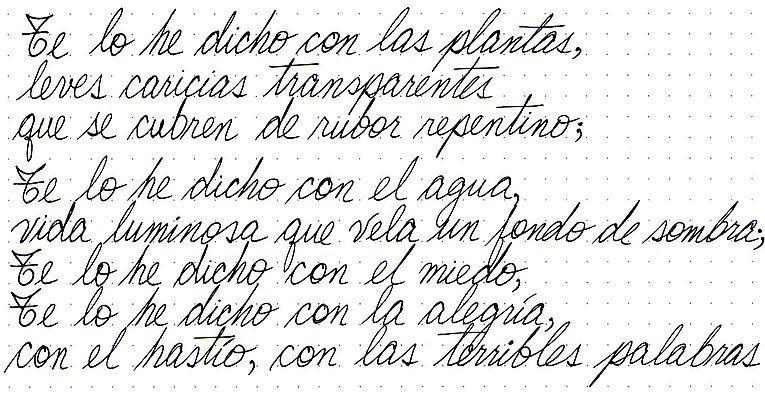 Te lo he dicho con las plantas,
leves caricias transparentes
que se cubren de rubor repentino;
Te lo he dicho con el agua,
vida luminosa que vela un fondo de sombra;
Te lo he dicho con el miedo,
Te lo he dicho con la alegría,
con el hastío, con las terribles palabras